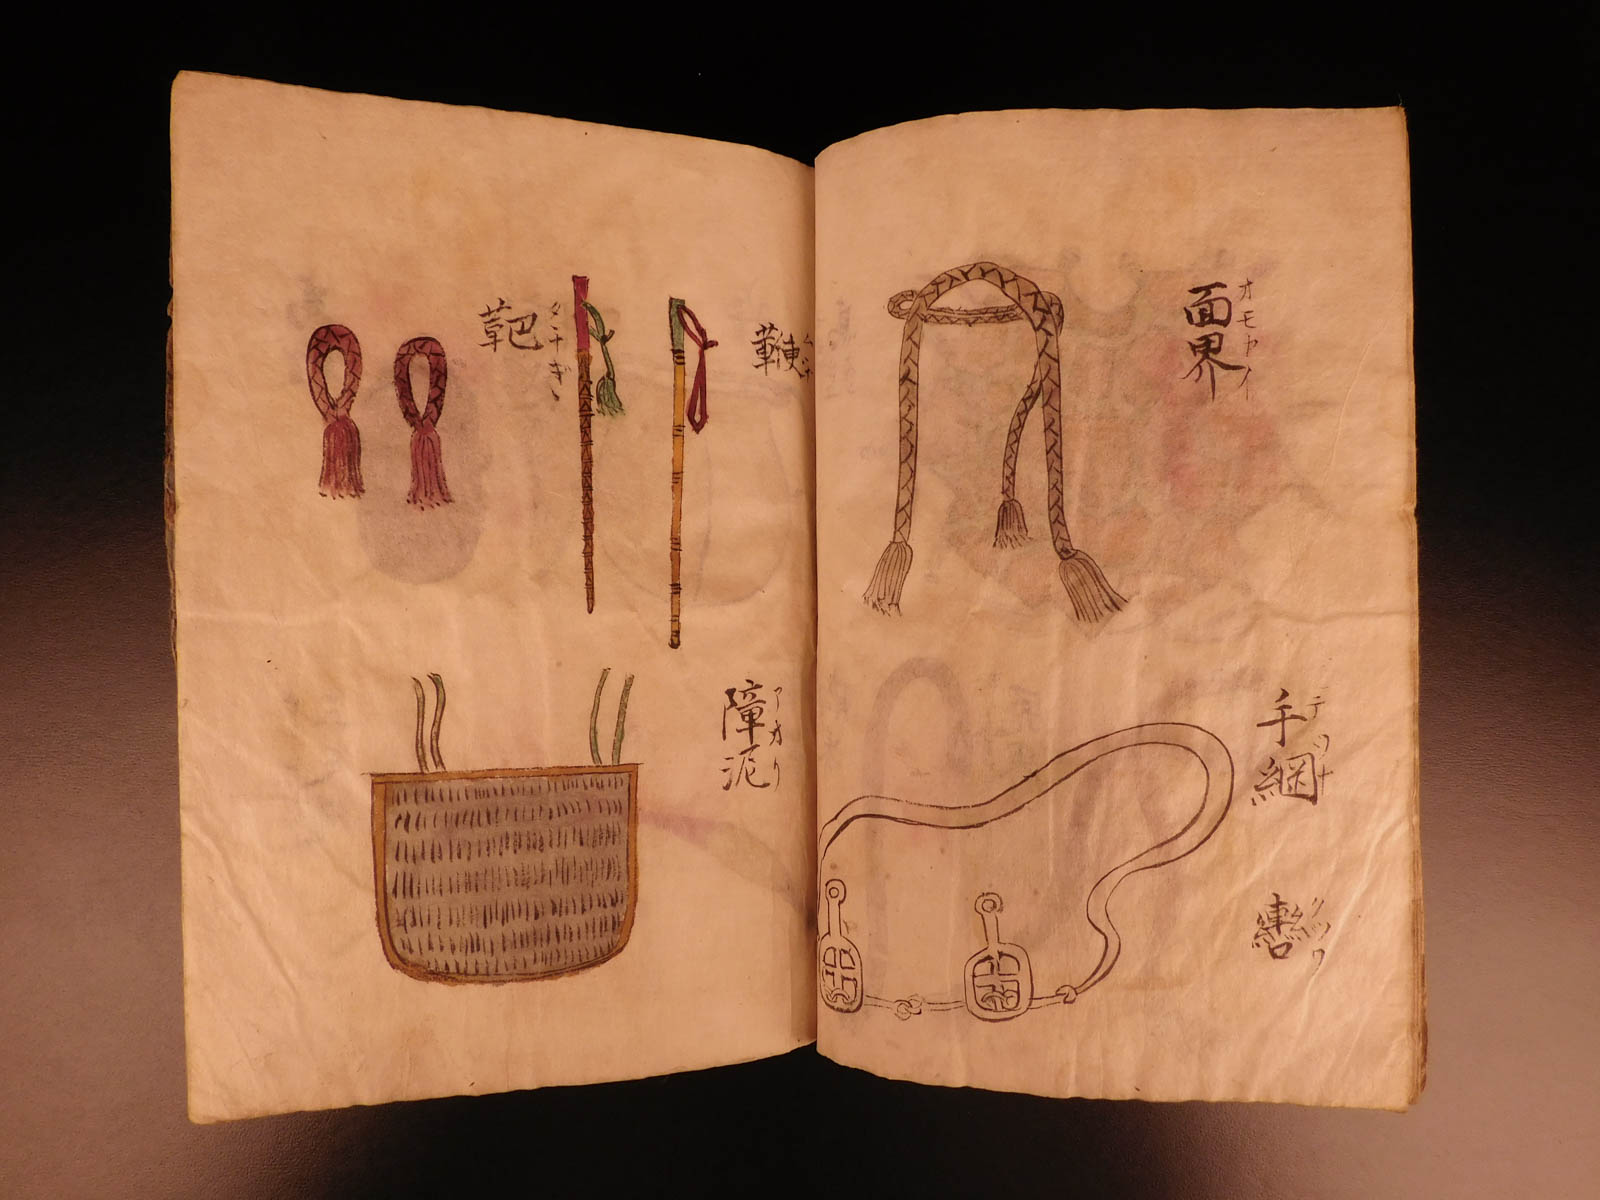 面界
オモカイ
手綱
テツナ
轡
クツワ
鞭
ムチ
靶
タナギ
障泥
アオリ